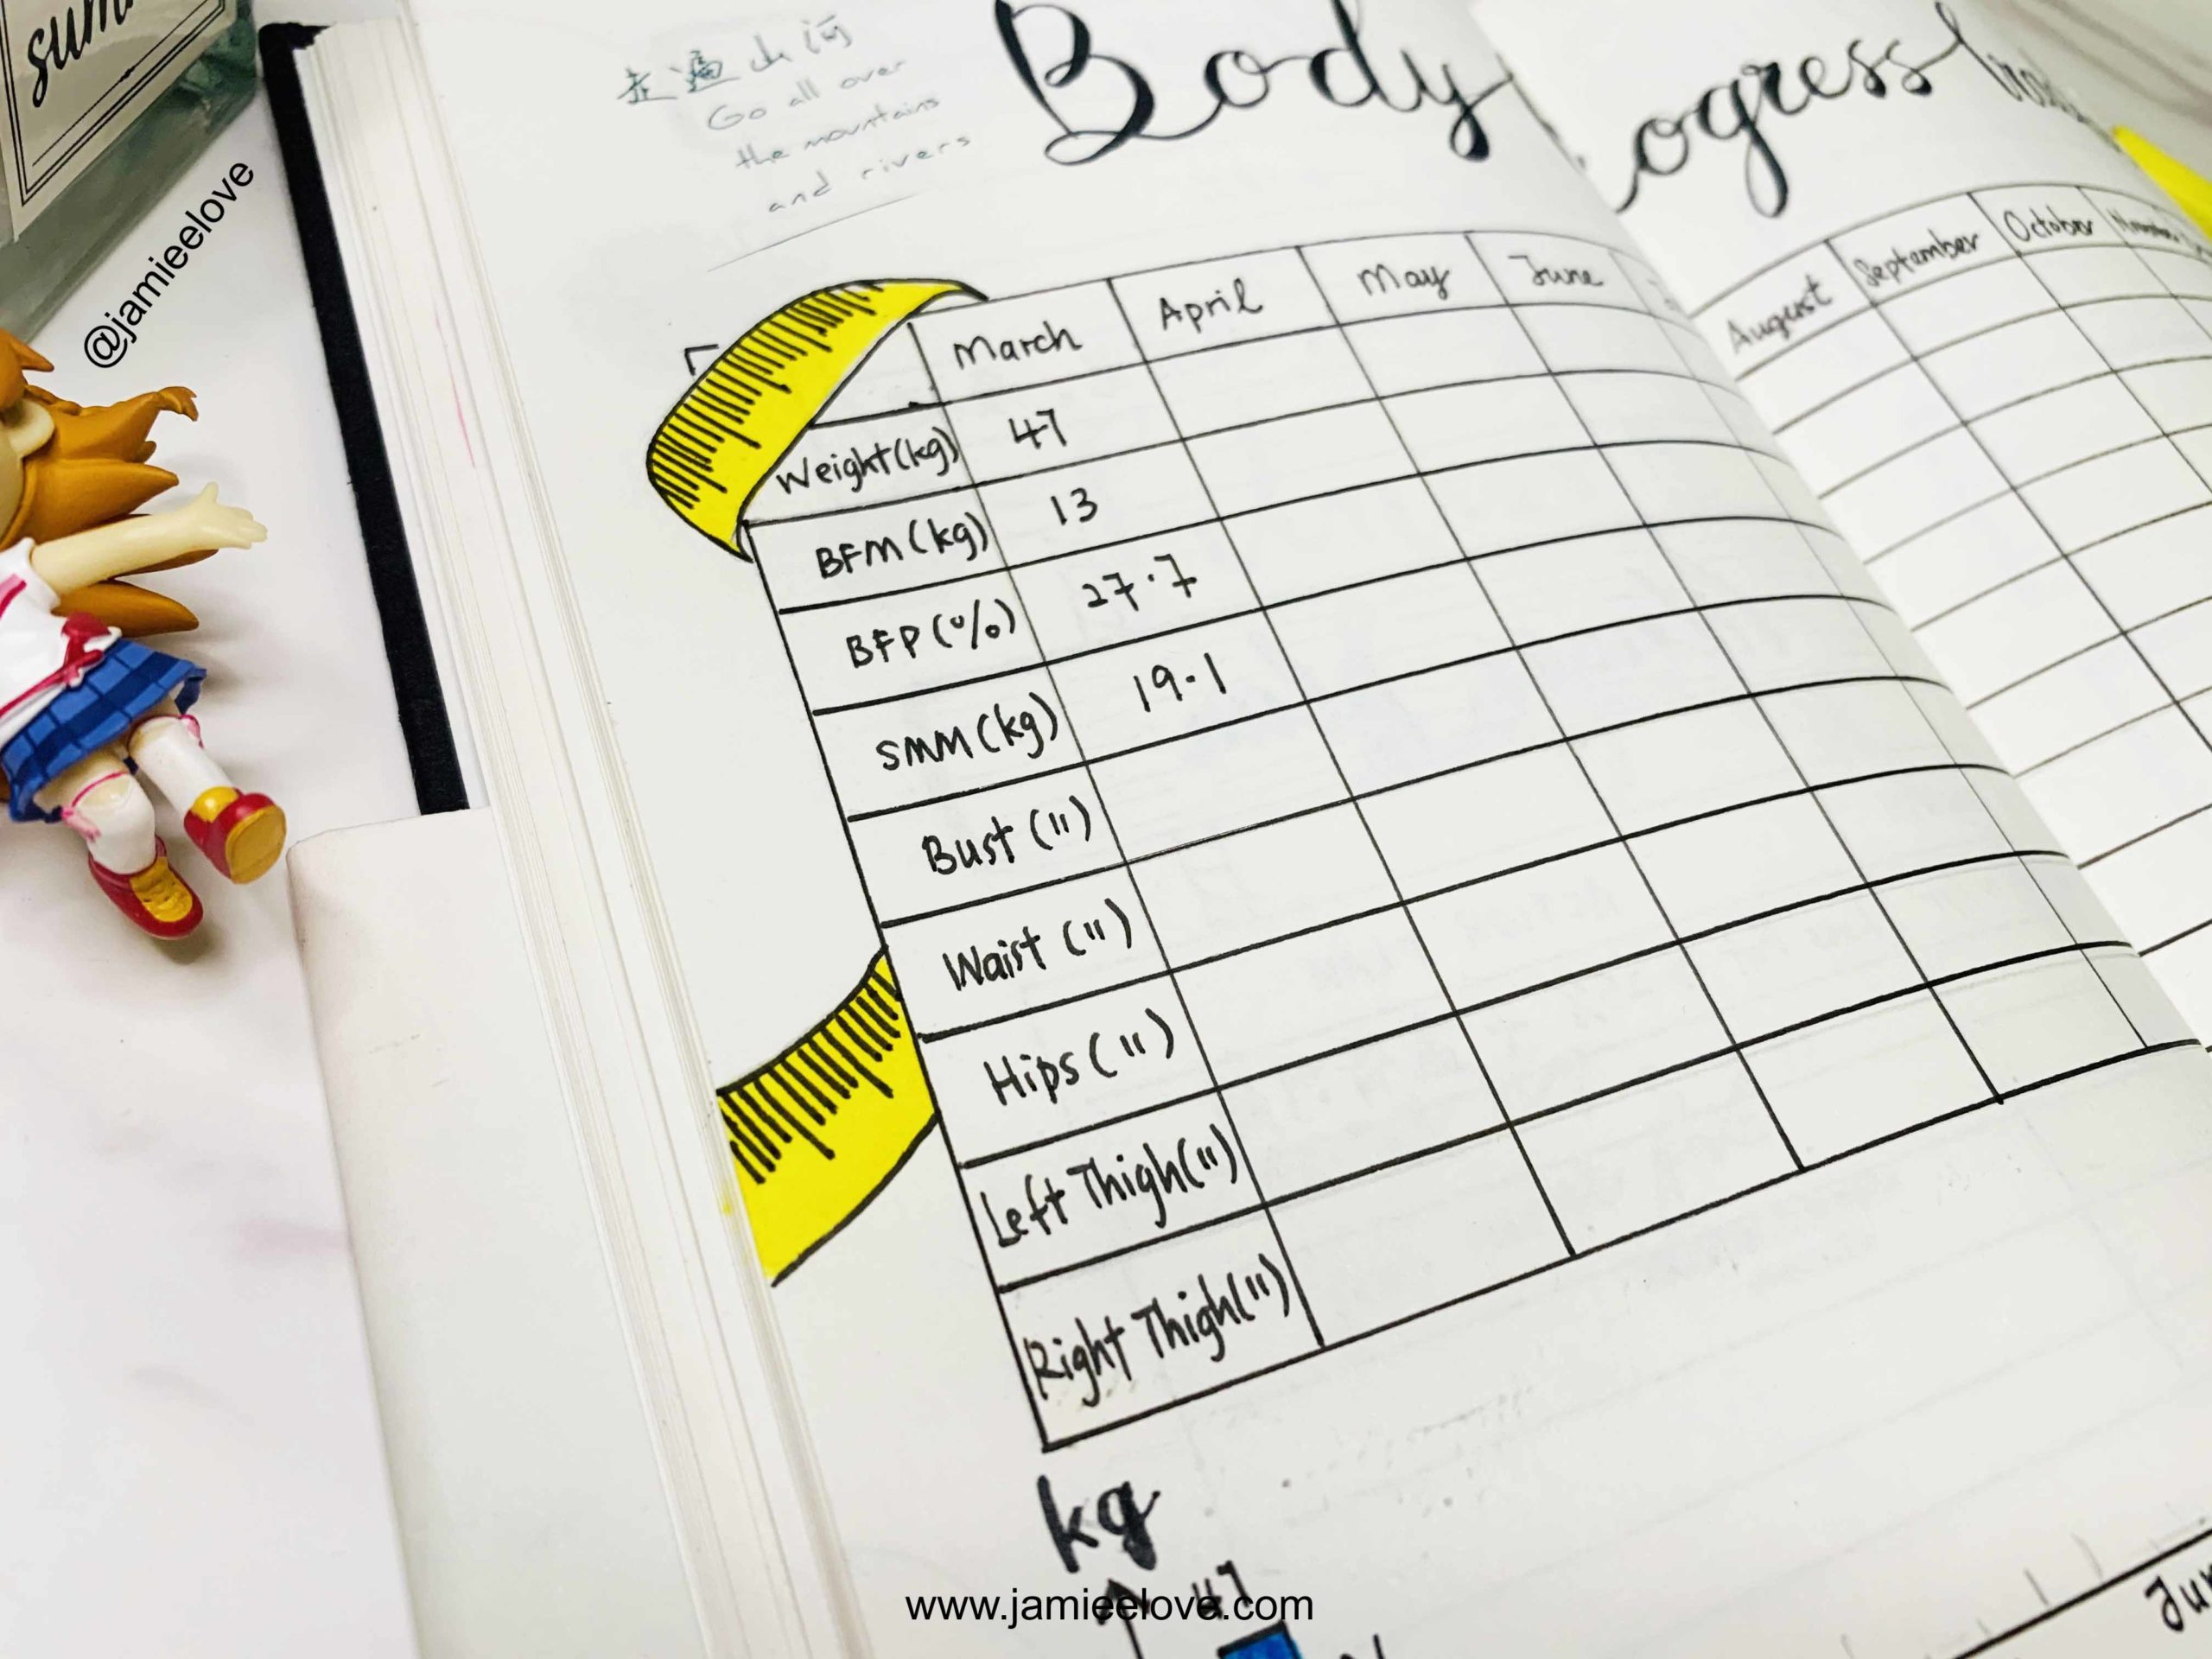 @jamieelove
走遍山河
Go all over
the mountains
and rivers
Body
March April May June
August September October
Weight(kg) 47
BFM (kg) 13
BFP (%) 27.7
SMM (kg) 19.1
Bust (")
Waist (")
Hips (")
Left Thigh(")
Right Thigh(")
kg
47
www.jamieelove.com